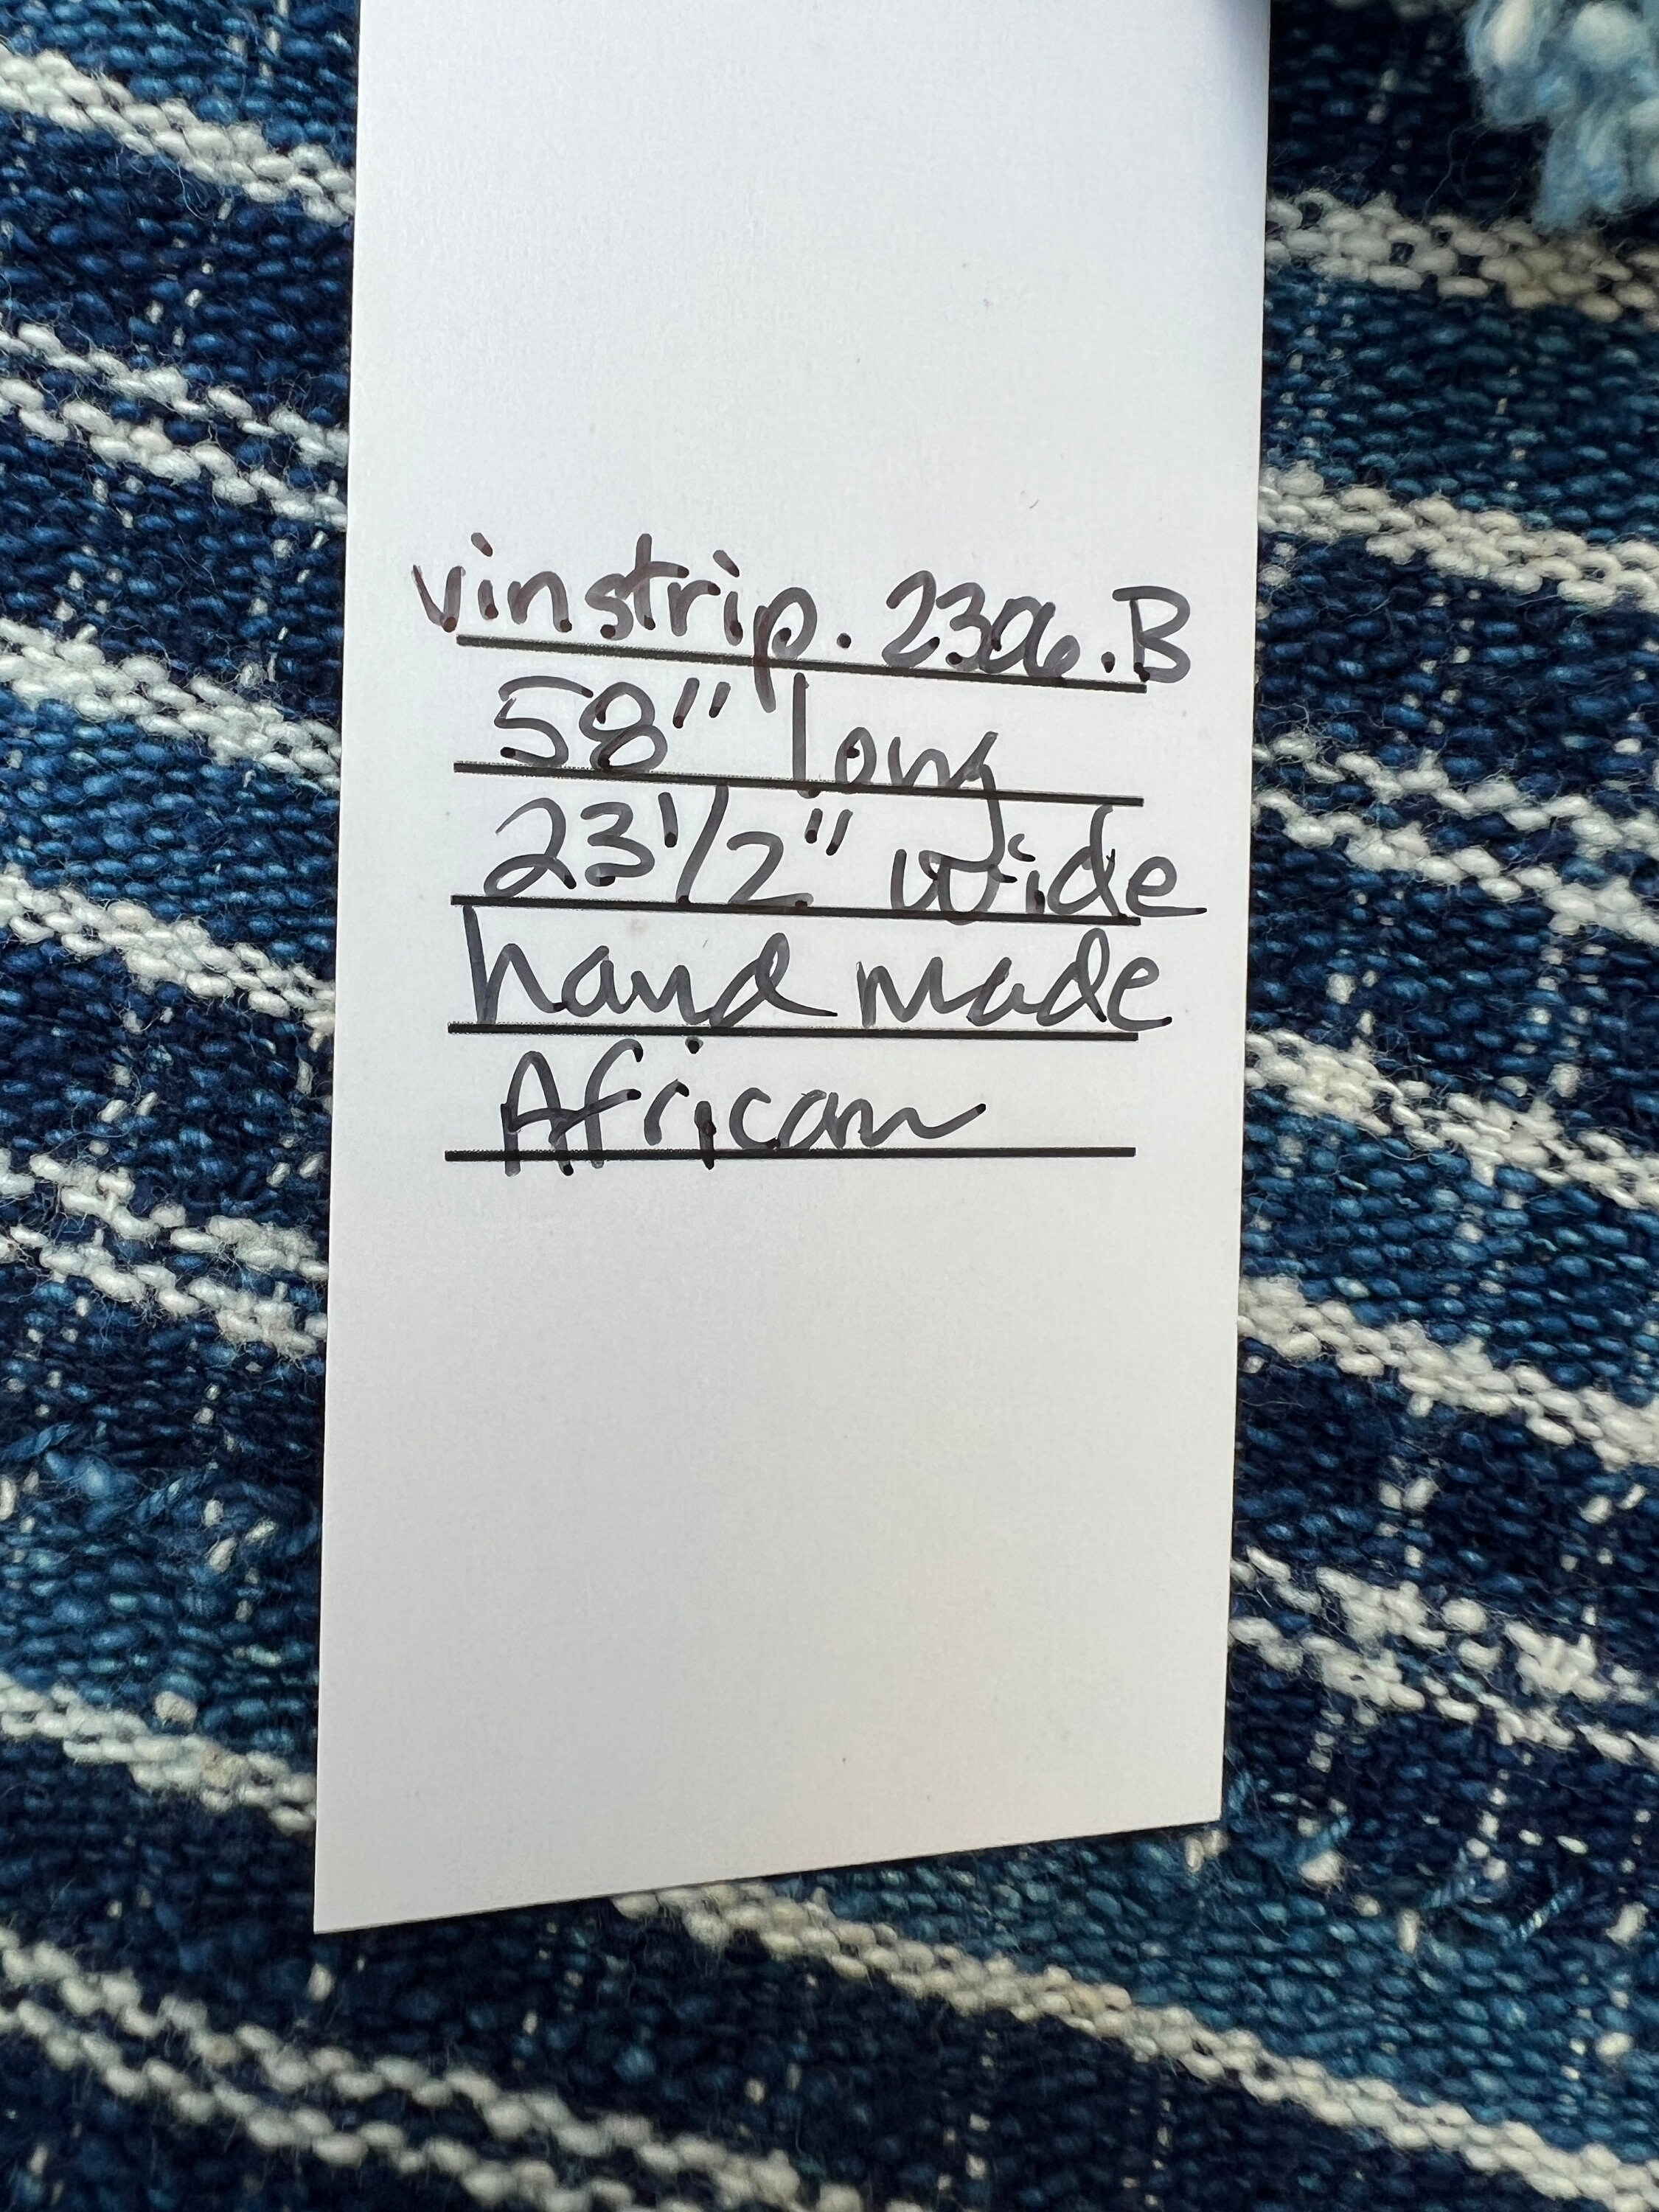 vinstrip. 2306.B
58" long
23 1/2" wide
hand made
African